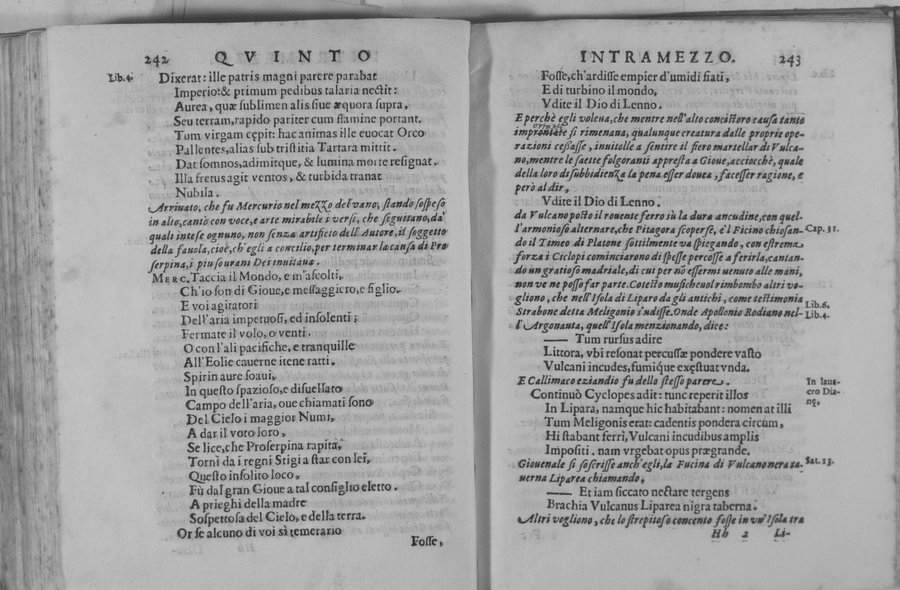 242 QVINTO
Lib.4. Dixerat: ille patris magni parere parabat
Imperio: & primum pedibus talaria nectit:
Aurea, quæ sublimen alis siue æquora supra,
Seu terram, rapido pariter cum flamine portant.
Tum virgam cępit: hac animas ille euocat Orco
Pallentes, alias sub tristitia Tartara mittit.
Dat somnos, adimitque, & lumina morte resignat.
Illa fretus agit ventos, & turbida tranat
Nubila.
Arriuato, che fu Mercurio nel mezzo del vano, stando sospeso
in alto, cantò con voce, e arte mirabile i versi, che seguitano, da'
quali intese ognuno, non senza artificio dell'Autore, il soggetto
della fauola, cioè, ch'egli a concilio, per terminar la causa di Pro
serpina, i piu sourani Dei inuitaua.
MERC. Taccia il Mondo, e m'ascolti,
Ch'io son di Gioue, e messaggiero, e figlio.
E voi agitatori
Dell'aria impetuosi, ed insolenti;
Fermate il volo, o venti.
O con l'ali pacifiche, e tranquille
All'Eolie cauerne itene ratti.
Spirin aure soaui,
In questo spazioso, e disuelato
Campo dell'aria, oue chiamati sono
Del Cielo i maggior Numi,
A dar il voto loro,
Se lice, che Proserpina rapita,
Torni da i regni Stigi a star con lei,
Questo insolito loco,
Fù dal gran Gioue a tal consiglio eletto.
A prieghi della madre
Sospettosa del Cielo, e della terra.
Or se alcuno di voi sì temerario
Fosse,
INTRAMEZZO. 243
Fosse, ch'ardisse empier d'umidi fiati,
E di turbino il mondo,
Vdite il Dio di Lenno.
E perchè egli voleua, che mentre nell'alto concistoro causa tanto
importante si rimenaua, qualunque creatura dalle proprie ope-
razioni cessasse, inuitolle a sentire il fiero martellar di Vulca-
no, mentre le saette folgoranti appresta a Gioue, acciocchè, quale
della loro disubbidienza la pena esser douea, facesser ragione, e
però al dir,
Vdite il Dio di Lenno.
da Vulcano posto il rouente ferro sù la dura ancudine, con quel-
l'armonioso alternare, che Pitagora scoperse, e'l Ficino chiosan- Cap. 31.
do il Timeo di Platone sottilmente va spiegando, con estrema
forza i Ciclopi cominciarono di spesse percosse a ferirla, cantan-
do un gratioso madriale, di cui per nō essermi uenuto alle mani,
non ve ne posso far parte. Cotesto musicheuol rimbombo altri vo-
gliono, che nell'Isola di Liparo da gli antichi, come testimonia
Strabone detta Meligonio s'udisse. Onde Apollonio Rodiano nel- Lib.6.
l'Argonauta, quell'Isola menzionando, dice: Lib.4.
—— Tum rursus adire
Littora, vbi resonat percussæ pondere vasto
Vulcani incudes, fumiq́ue exęstuat vnda.
E Callimaco eziandio fu dello stesso parere. In laua-
Continuò Cyclopes adit: tunc reperit illos cro Dia-
In Lipara, namque hic habitabant: nomen at illi nę,
Tum Meligonis erat: cadentis pondera circum,
Hi stabant ferri, Vulcani incudibus amplis
Impositi. nam vrgebat opus prægrande.
Giouenale si soscrisse anch'egli, la Fucina di Vulcano nera ta- Sat. 13.
uerna Liparea chiamando,
—— Et iam siccato nectare tergens
Brachia Vulcanus Liparea nigra taberna.
Altri vogliono, che lo strepitoso concento fosse in vn'Isola tra
Hh 2 Li-